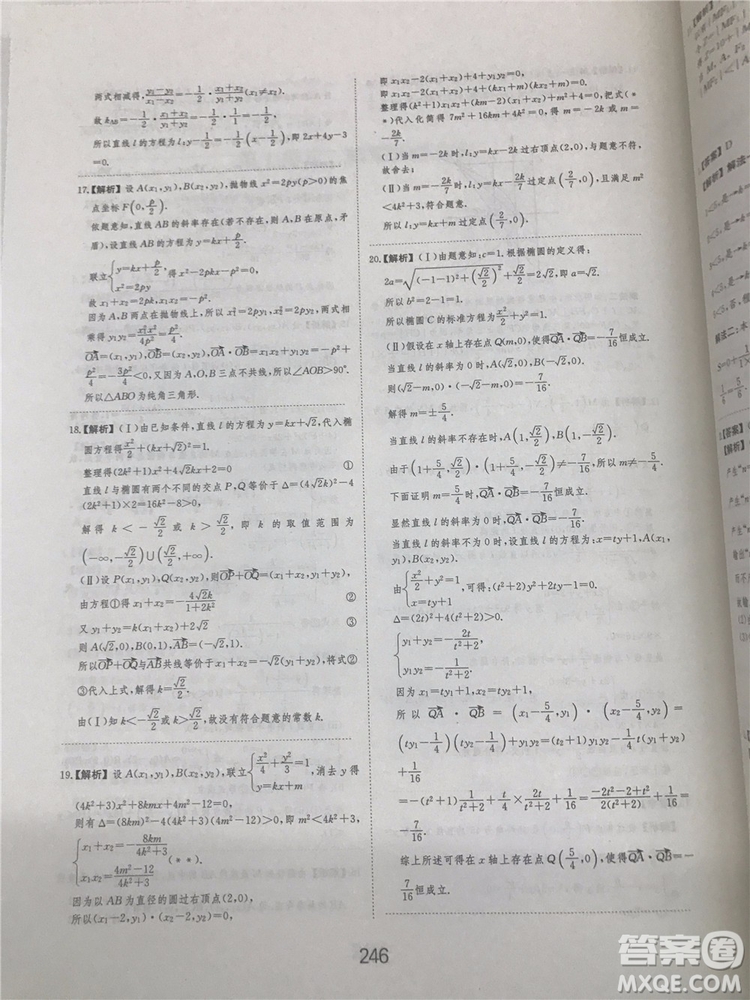 两式相减得,$\frac{y_1-y_2}{x_1-x_2}=-\frac{1}{2}\cdot\frac{x_1+x_2}{y_1+y_2}(x_1\neq x_2)$.
故$k_{AB}=-\frac{1}{2}\cdot\frac{x_1+x_2}{y_1+y_2}=-\frac{1}{2}\cdot\frac{1}{\frac{1}{2}\cdot}$
所以直线l的方程为$y-\frac{1}{2}=-\frac{1}{2}(x-\frac{1}{2})$,即2x+4y-3
=0.
17.【解析】设A(x₁,y₁),B(x₂,y₂),抛物线x²=2py(p>0)的焦
点坐标F(0,p/2).
依题意知,直线AB的斜率存在(若不存在,则A,B在原点,矛
盾),设直线AB的方程为y=kx+p/2.
联立{y=kx+p/2, x²=2py
故x₁+x₂=2pk,x₁x₂=-p².
因为A,B两点在抛物线上,所以x₁²=2py₁,x₂²=2py₂,两式相
乘得y₁y₂=x₁²x₂²/4p²=p²/4.
OA=(x₁,y₁),OB=(x₂,y₂),OA·OB=x₁x₂+y₁y₂=-p²+
p²/4=-3p²/4<0,又因为A,B,O三点不共线,所以∠AOB>90°.
所以△ABO为钝角三角形.
18.【解析】(Ⅰ)由已知条件,直线l的方程为y=kx+√2,代入椭
圆方程得x²/2+(kx+√2)²=1.
整理得(2k²+1)x²+4√2kx+2=0 ①
直线l与椭圆有两个不同的交点P,Q等价于Δ=(4√2k)²-4
(2k²+1)×2=16k²-8>0,
解得k<-√2/2或k>√2/2,即k的取值范围为
(-∞,-√2/2)∪(√2/2,+∞).
(Ⅱ)设P(x₁,y₁),Q(x₂,y₂),则OP+OQ=(x₁+x₂,y₁+y₂),
由方程①得x₁+x₂=-4√2k/1+2k² ②
又y₁+y₂=k(x₁+x₂)+2√2 ③
则A(√2,0),B(0,1),AB=(-√2,1).
所以OP+OQ与AB共线等价于x₁+x₂=-√2(y₁+y₂),将式②
③代入上式,解得k=√2/2.
由(Ⅰ)知k<-√2/2或k>√2/2,故没有符合题意的常数k.
19.【解析】设A(x₁,y₁),B(x₂,y₂),联立{x²/4+y²/3=1, y=kx+m,消去y得
(4k²+3)x²+8kmx+4m²-12=0,
则有Δ=(8km)²-4(4k²+3)(4m²-12)>0,即m²<4k²+3,
{x₁+x₂=-8km/4k²+3, x₁x₂=4m²-12/4k²+3 (**).
因为以AB为直径的圆过右顶点(2,0),
所以(x₁-2,y₁)·(x₂-2,y₂)=0,
即x₁x₂-2(x₁+x₂)+4+y₁y₂=0,
即x₁x₂-2(x₁+x₂)+4+(kx₁+m)(kx₂+m)=0.
整理得(k²+1)x₁x₂+(km-2)(x₁+x₂)+m²+4=0,把式(*
*)代入化简得7m²+16km+4k²=0,解得m=-2k或m=
-2k/7.
(Ⅰ)当m=-2k时,y=kx-2k过右顶点(2,0),不与题意相符,
故舍去;
(Ⅱ)当m=-2k/7时,y=kx-2k/7过定点(2/7,0),且满足m²
<4k²+3,符合题意.
所以l:y=kx+m过定点(2/7,0).
20.【解析】(Ⅰ)由题意知:c=1.根据椭圆的定义得:
2a=√((-1-1)²+(√2/2)²)+√2/2=2√2,即a=√2.
所以b²=2-1=1.
所以椭圆C的标准方程为x²/2+y²=1.
(Ⅱ)假设在x轴上存在点Q(m,0),使得QA·QB=-7/16恒成立.
当直线l的斜率为0时,A(√2,0),B(-√2,0).
则(√2-m,0)·(-√2-m,0)=-7/16.
解得m=±5/4.
当直线l的斜率不存在时,A(1,√2/2),B(1,-√2/2).
由于(1+5/4,√2/2)·(1+5/4,-√2/2)≠-7/16,所以m≠-5/4.
下面证明m=5/4时,QA·QB=-7/16恒成立.
显然直线l的斜率为0时,QA·QB=-7/16.
当直线l的斜率不为0时,设直线l的方程为:x=ty+1,A(x₁,
y₁),B(x₂,y₂).
由{x²/2+y²=1, x=ty+1,可得:(t²+2)y²+2ty-1=0.
Δ=(2t)²+4(t²+2)>0.
{y₁+y₂=-2t/t²+2, y₁y₂=-1/t²+2.
因为x₁=ty₁+1,x₂=ty₂+1,
所以QA·QB=(x₁-5/4,y₁)·(x₂-5/4,y₂)=
(ty₁-1/4)(ty₂-1/4)+y₁y₂=(t²+1)y₁y₂-1/4t(y₁+y₂)+1/16
=-(t²+1)1/t²+2+t/4×2t/t²+2+1/16=-2t²-2+t²/2(t²+2)+1/16=
-7/16.
综上所述可得在x轴上存在点Q(5/4,0),使得QA·QB=-
7/16恒成立.
246
答案圈
MXQE.COM